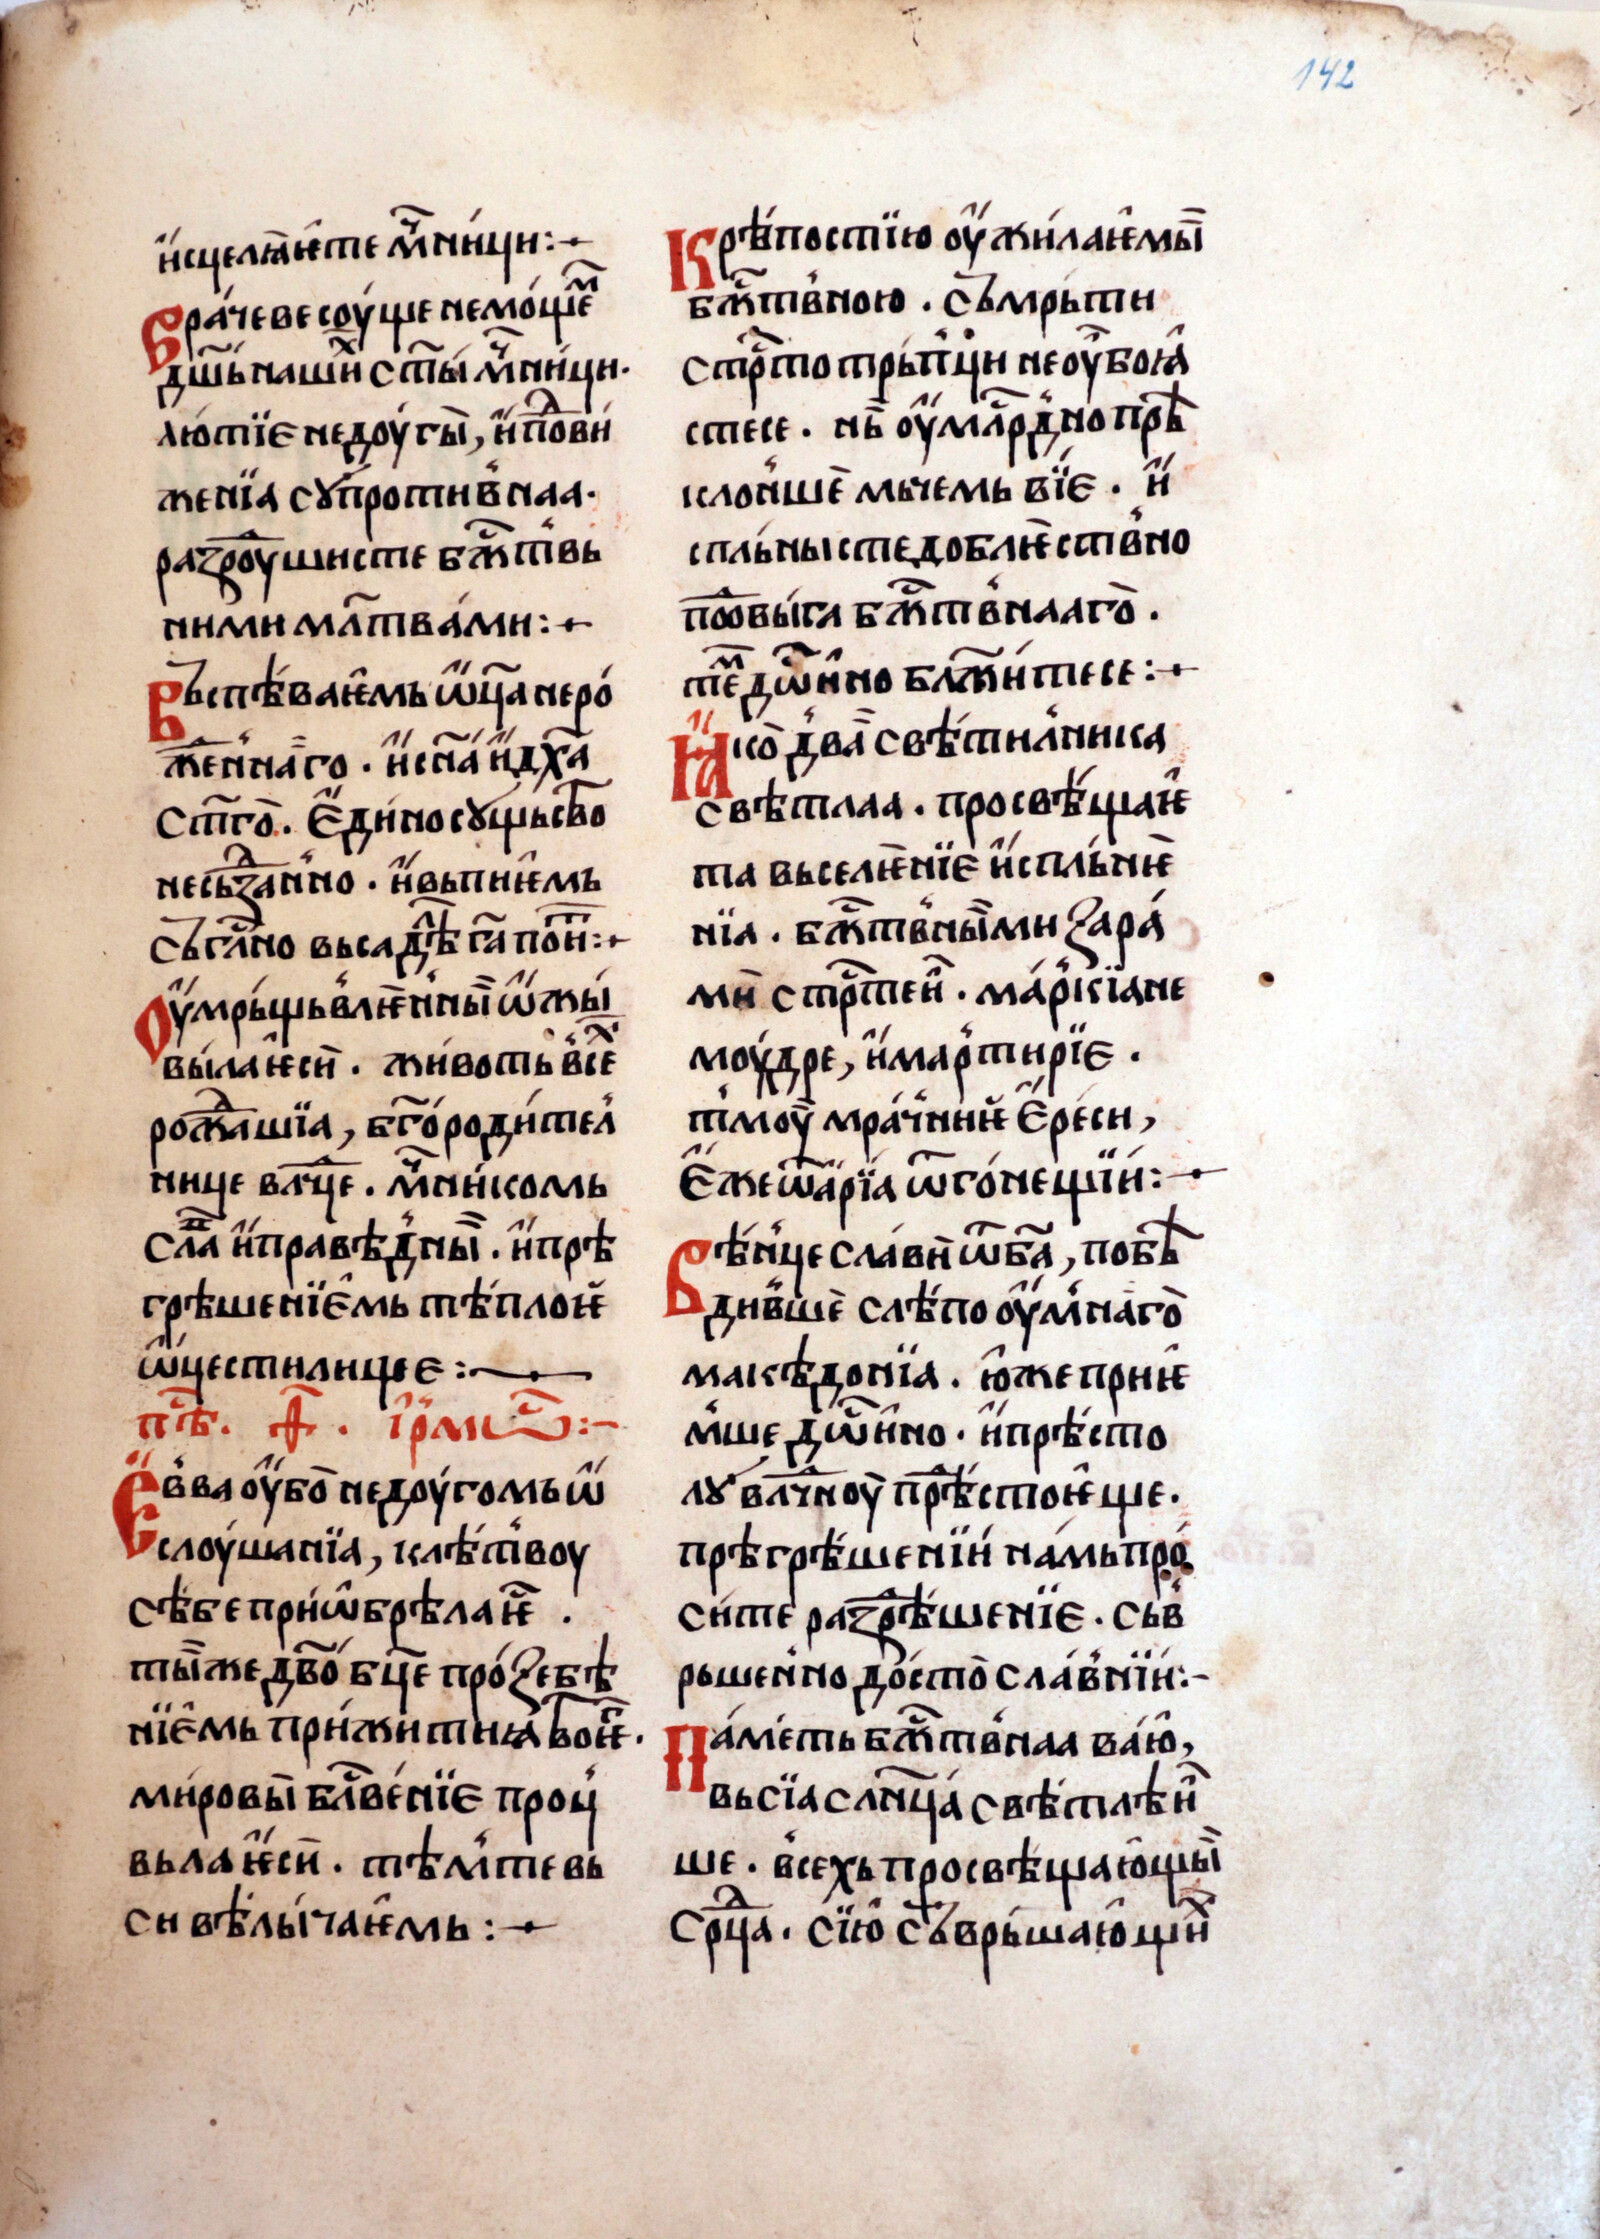 142
и҆сцелꙗѥте мч҃ни́ци:-
Вра́чеве соу́ще немо́щеⷨ
дш҃ь нашиⷯ ст҃ы́ мч҃ни́ци.
лю́тїе недоу́гы, и҆ поⷣви́
женїа сꙋ́противнаа.
раꙁроу́шисте бжⷭ҇твь
ними мл҃тва́ми:-
Въспѣ́ваѥмь ѿц҃а неро́
жⷣенна́го. и҆ сн҃а и҆ дх҃а
ст҃го. є҆ди́носꙋщьство
несьꙁⷣанно. и҆ вьпиѥмь
съгла́сно вьса дѣ́ла г҃а поите:-
Оу҆мрьщьвлѥнныи ѿ жы́
вы́ла ѥси. животь всеⷯ
рожⷣашїа, бг҃ороди́тел
нице влⷣчце. мч҃ни́комь
сла́во и҆ правѣ́дны. и҆ прѣ
грѣшенїемь тѣ́плоѥ
ѡ҆цести́лище є:-
пⷭ҇ѣ. ѳ҃. і҆рмѡⷭ:-
Є҆вва оу҆бо недоу́гомь ѡ҆
слоу́шанїа, клѣ́твоу
сѣ́бе приѡбрѣла ѥⷭ .
ты́же дв҃о бц҃е проꙁебѣ
нїемь прижитиꙗ бои҆ⷭ.
ми́ровы блⷭ҇ве́нїе проц
вьла ѥси. тѣ́мте вь
си вѣлы́чаѥмь:-
Крѣ́постїю оу҆жи́лаѥмы́
бжⷭ҇твною. съмрьти
стрⷭ҇тотрьпци не оу҆боꙗ
стесе. нь оу҆млрⷣно прѣ
клоньше мьчемь вїе. и҆
спльнысте доблѥствно
поⷣвыга бжⷭ҇твнаа го.
теⷨ дѡсто́йно блжи́тесе:-
Ꙗ҆ко два свѣти́лника
свѣтлаа. просвѣща́ѥ
та вьселѥнїе и҆спльнѥ
нїа. бжⷭ҇твнымиꙁара́
ми стрⷭ҇теи. ма́ркїане
моу́дре, и҆ мартирїе.
тмоу мра́чниѥ є҆ре́си,
є҆же ѿ а҆рїа ѿго́нещїи:-
Вѣ́нце сла́вни ѿ б҃а, побѣ
дивше слѣ́по оу҆мнаго
македонїа. ю҆же приѥ
мше дѡсто́йно. и҆ прѣ́сто
лꙋ влⷣчноу прѣⷣстоѥще.
прѣгрѣ́шенїи на́мь про́
си́те раꙁдрѣ́шенїе. сьв
рьшенно досто сла́внїи:-
Па́меть бжⷭ҇твнаа ва́ю,
вьсїа слн҃ца свѣтлѣи
ше. всехь просвѣщаю҆щы́
срⷣца. сїю съврьшаю҆щиⷯ